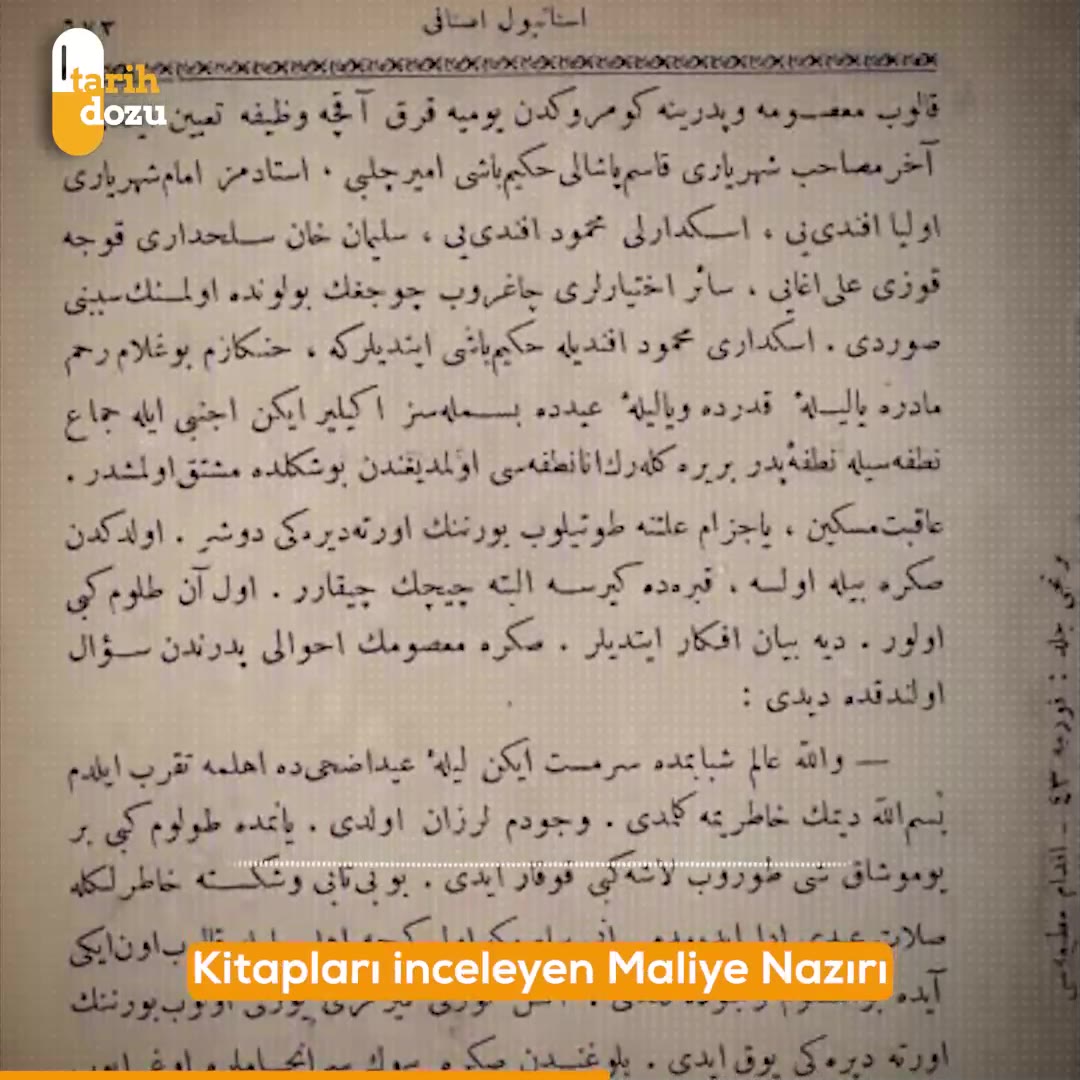 استانبول اصنافی
tarih
dozu
قالوب معصومه وپدرینه کومروکدن یومیه قرق آقچه وظیفه تعیین
آخر مصاحب شهریاری قاسم‌پاشالی حکیم‌باشی امیر چلبی ، استادمز امام شهریاری
اولیا افندی‌یی ، اسکدارلی محمود افندی‌یی ، سلیمان خان سلحداری قوجه
قوزی علی اغایی ، سائر اختیارلری چاغروب چوجغك بولونده اولمسنك سببنی
صوردی . اسکداری محمود افندیله حکیم‌باشی ایتدیلرکه ، خنکارم بو غلام رحم
مادره یا لیلهٔ قدرده ویا لیلهٔ عیدده بسمله‌سز اکیلیر ایکن اجنبی ایله جماع
نطفه‌سیله نطفهٔ پدر بر یره کله‌رك انا نطفه‌سی اولمدیغندن بو شکلده مشتق اولمشدر .
عاقبت مسکین ، یا جزام علتنه طوتیلوب بورننك اورته دیره‌کی دوشر . اولدکدن
صکره بیله اولسه ، قبره‌ده کیرسه البته چیچك چیقارر . اول آن طلوم کبی
اولور . دیه بیان افکار ایتدیلر . صکره معصومك احوالی پدرندن سؤال
اولندقده دیدی :
— والله عالم شبابمده سرمست ایکن لیلهٔ عید اضحی‌ده اهلمه تقرب ایلدم
بسم‌الله دیمك خاطریمه کلمدی . وجودم لرزان اولدی . یانمده طولوم کبی بر
یوموشاق شی طوروب لاشه کبی قوقار ایدی . بو بی‌تابی وشکسته خاطرلکله
Kitapları inceleyen Maliye Nazırı
اورته دیره‌کی یوق ایدی . بلوغندن صکره